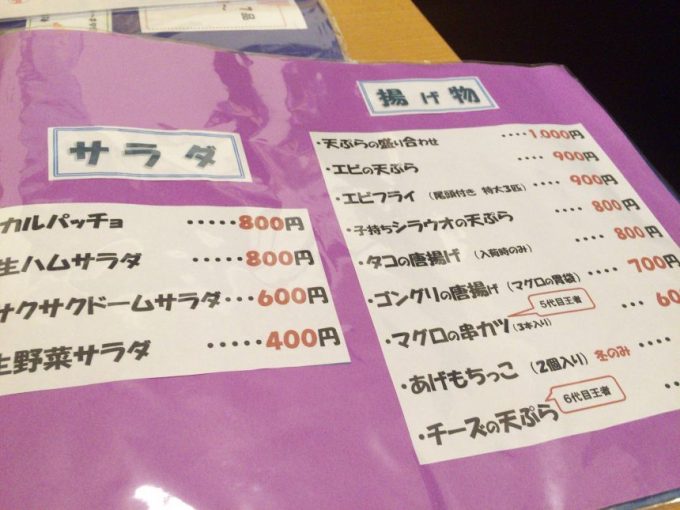 1品
サラダ
カルパッチョ ‥‥‥800円
生ハムサラダ ‥‥‥800円
サクサクドームサラダ‥‥600円
生野菜サラダ ‥‥‥400円
揚げ物
・天ぷらの盛り合わせ ‥‥1,000円
・エビの天ぷら ‥‥900円
・エビフライ (尾頭付き 特大3匹) ‥‥900円
・子持ちシラウオの天ぷら ‥‥800円
・タコの唐揚げ (入荷時のみ) ‥‥800円
・ゴングリの唐揚げ (マグロの胃袋) ‥‥700円
5代目王者
・マグロの串カツ (3本入り)
・あげもちっこ (2個入り) 冬のみ ‥‥
6代目王者
・チーズの天ぷら